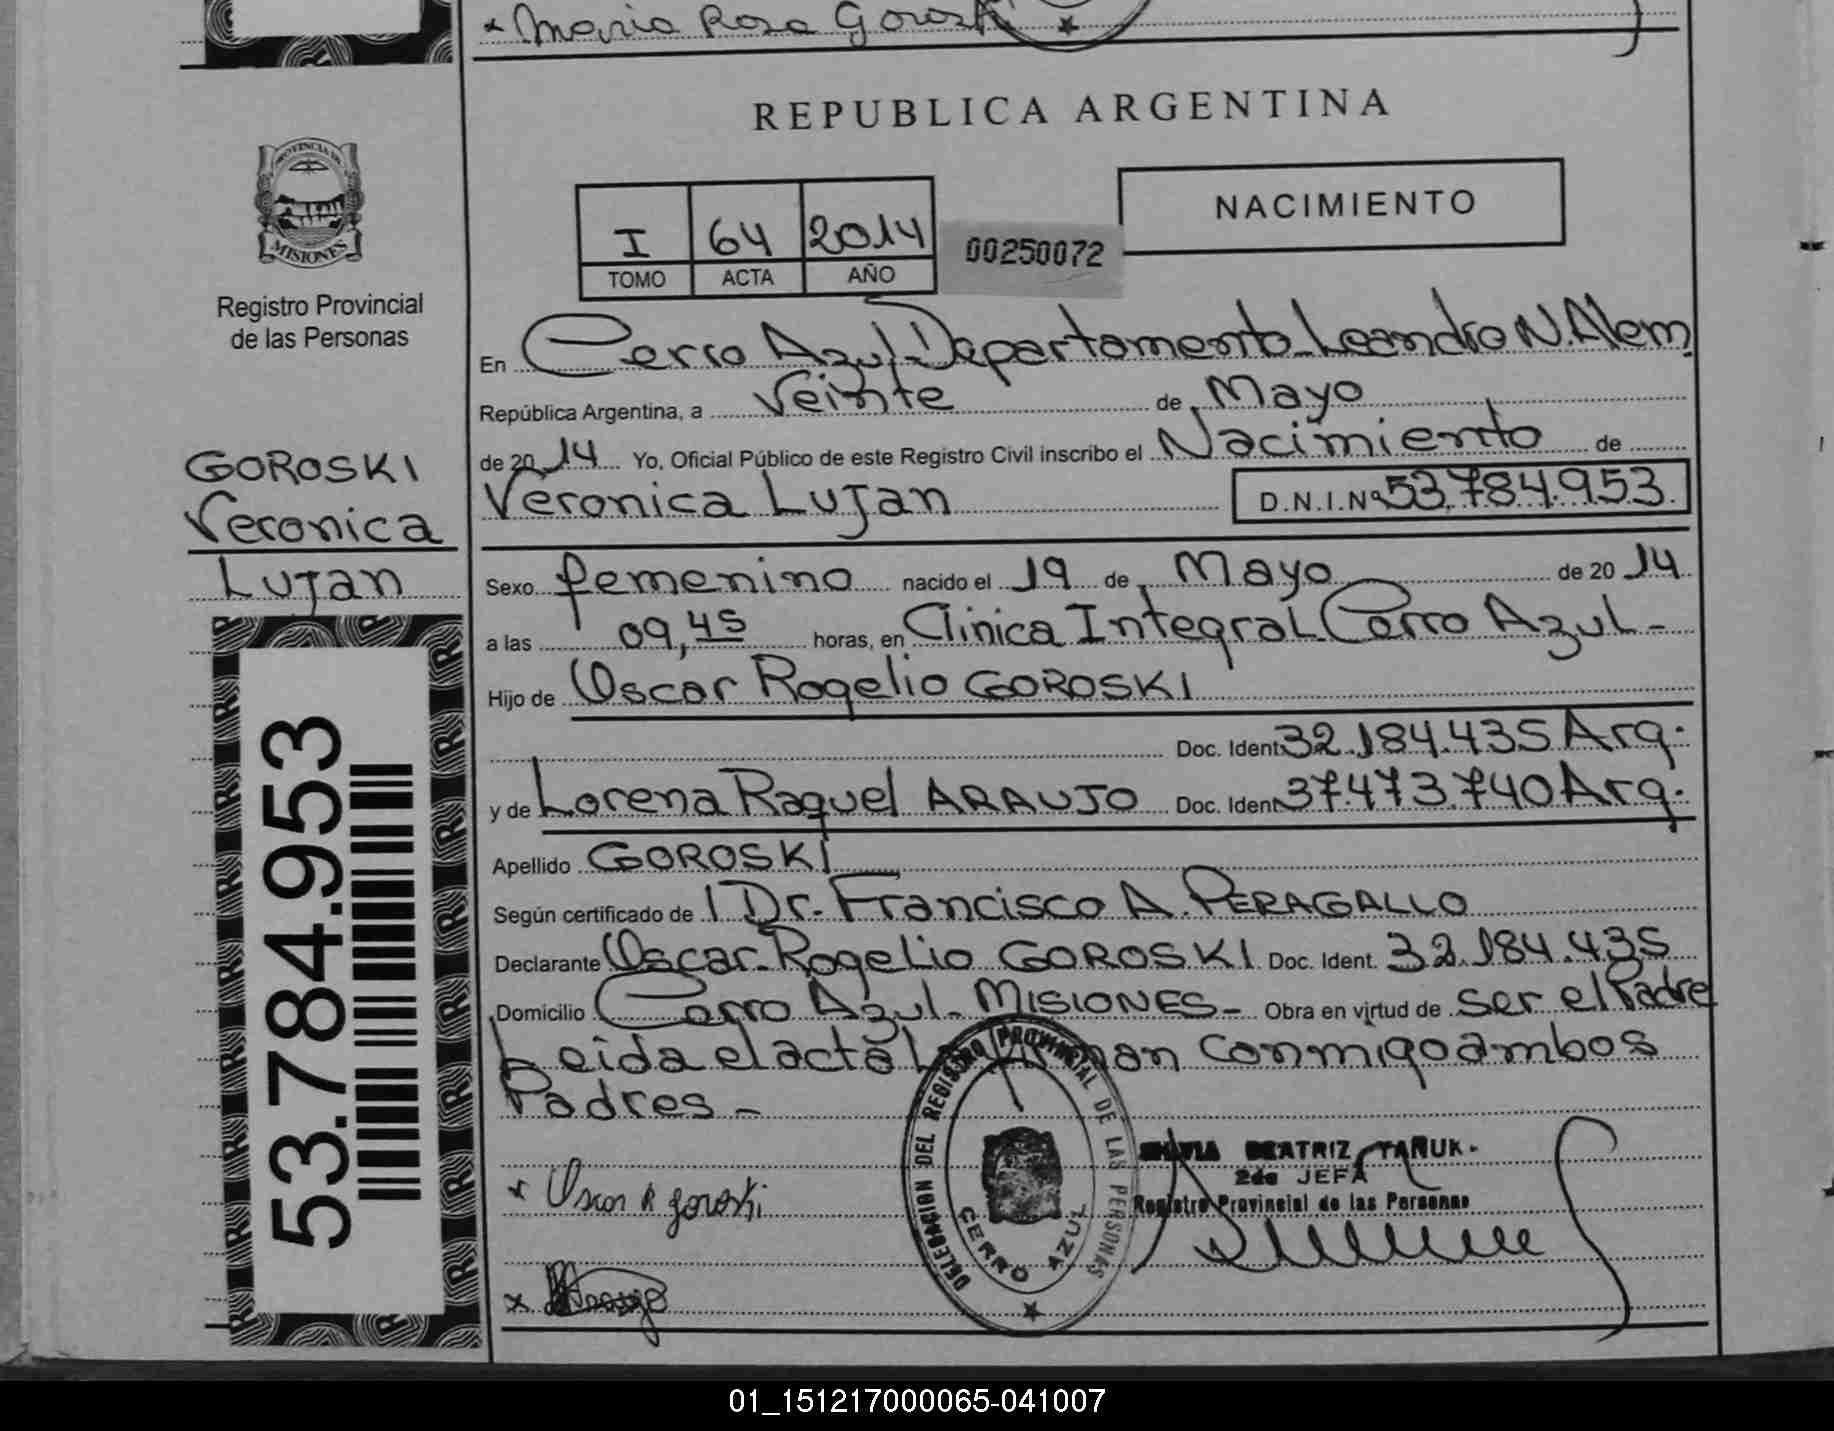 * Maria Rosa Goroski
REPUBLICA ARGENTINA
PROVINCIA DE
MISIONES
Registro Provincial
de las Personas
NACIMIENTO
I 64 2014
TOMO ACTA AÑO
00250072
En Cerro Azul-Departamento-Leandro N. Alem
República Argentina, a Veinte de Mayo
de 2014 Yo, Oficial Público de este Registro Civil inscribo el Nacimiento de
Veronica Lujan D.N.I.Nº 53.784.953
GOROSKI
Veronica
Lujan
Sexo femenino nacido el 19 de Mayo de 2014
a las 09,45 horas, en Clinica Integral Cerro Azul-
Hijo de Oscar Rogelio GOROSKI
Doc. Ident. 32.184.435 Arg.
y de Lorena Raquel ARAUJO Doc. Ident. 37.473.740 Arg.
Apellido GOROSKI
Según certificado de Dr. Francisco A. PERAGALLO
Declarante Oscar Rogelio GOROSKI Doc. Ident. 32.184.435
Domicilio Cerro Azul-MISIONES- Obra en virtud de ser el Padre
Leida el acta conmigo ambos
Padres-
53.784.953
DELEGACION DEL REGISTRO PROVINCIAL DE LAS PERSONAS
CERRO AZUL
BEATRIZ TAÑUK.
2da JEFA
Registro Provincial de las Personas
* Oscar R goroski
x
01_151217000065-041007